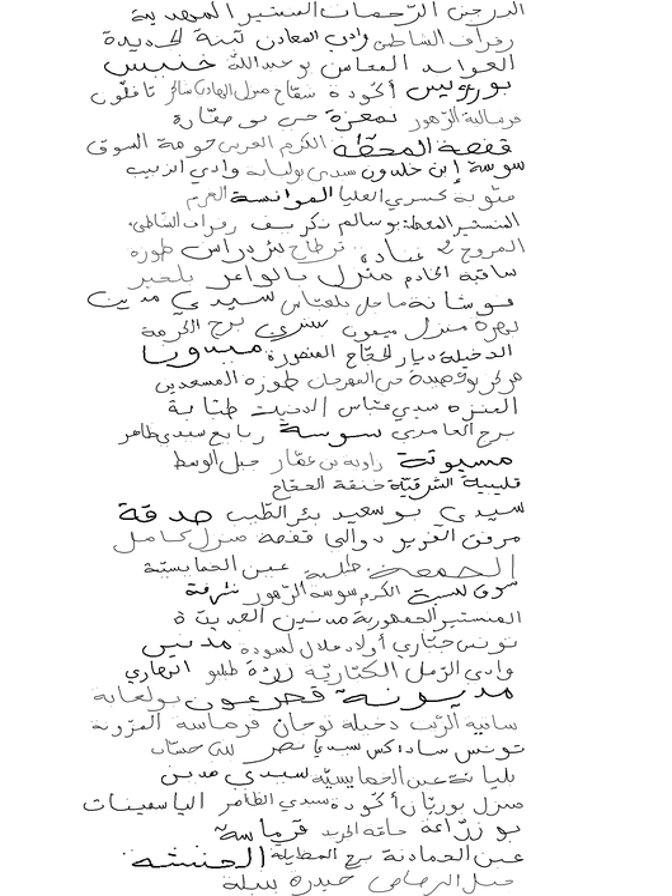 الدرجين الرّحمات المنستير المهدية
رفراف الشاطئ وادي المعادن ثنية الحديدة
العوابد المعاس بوعبد اللّه خنيس
بورويس أكودة شمّاخ منزل الهادي شاكر تافلّون
فرمالية الزّهور نمغزة حي بو صفّارة
قفصة المحطّة الكرم الغربي حومة السوق
سوسة إبن خلدون سيدي بوليانة وادي الزبيب
منّوبة كسرى العليا الموانسة العريم
المنستير المحطة بوسالم تكريف رفراف الشاطئ
المروج 2 غنّادة قرطاج بئر دراس طوزة
ساقية الخادم منزل بالواعر بلخير
فوشانة ماجل بلعبّاس سيدي مدين
بهرة منزل ميمون سترين برج الكرمة
الدخيلة ديار الحجّاج المنصورة
مركز بوقصيدة حي المهرجان طوزة المسعدين
المنزه سيدي عبّاس الدخيلة طبّابة
برج العامري سوسة ربايع سيدي ظاهر
مسيوتة زاوية بن عمّار جبل الوسط
قليبية الشرقيّة خنقة الحجّاج
سيدي بوسعيد بئر الطّيب صدقة
مرفق الغدير دوالي قفصة منزل كامل
الجمعة طلبة عين الحمايسيّة
سوق لسبت الكرم سوسة الزّهور شرفة
المنستير الجمهورية مدنين الجديدة
تونس جبّاري أولاد ملال لسودة مدنين
وادي الرّمل الكتاريّة زردة طبلبو النهاري
مديونة قصر عون بولعابة
سانية الزيت دخيلة توجان قرماسة المزّونة
تونس ساداكس سيدي نصر بني حسّان
بليانة عين الحمايسيّة سيدي مدين
منزل بوزيّان أكودة سيدي الظاهر الياسمينات
بو زرّاعة حامّة الجريد قرماسة
عين الحمادنة برج المطايلة الحنشة
جبل الرصاص حيدرة سبيبة